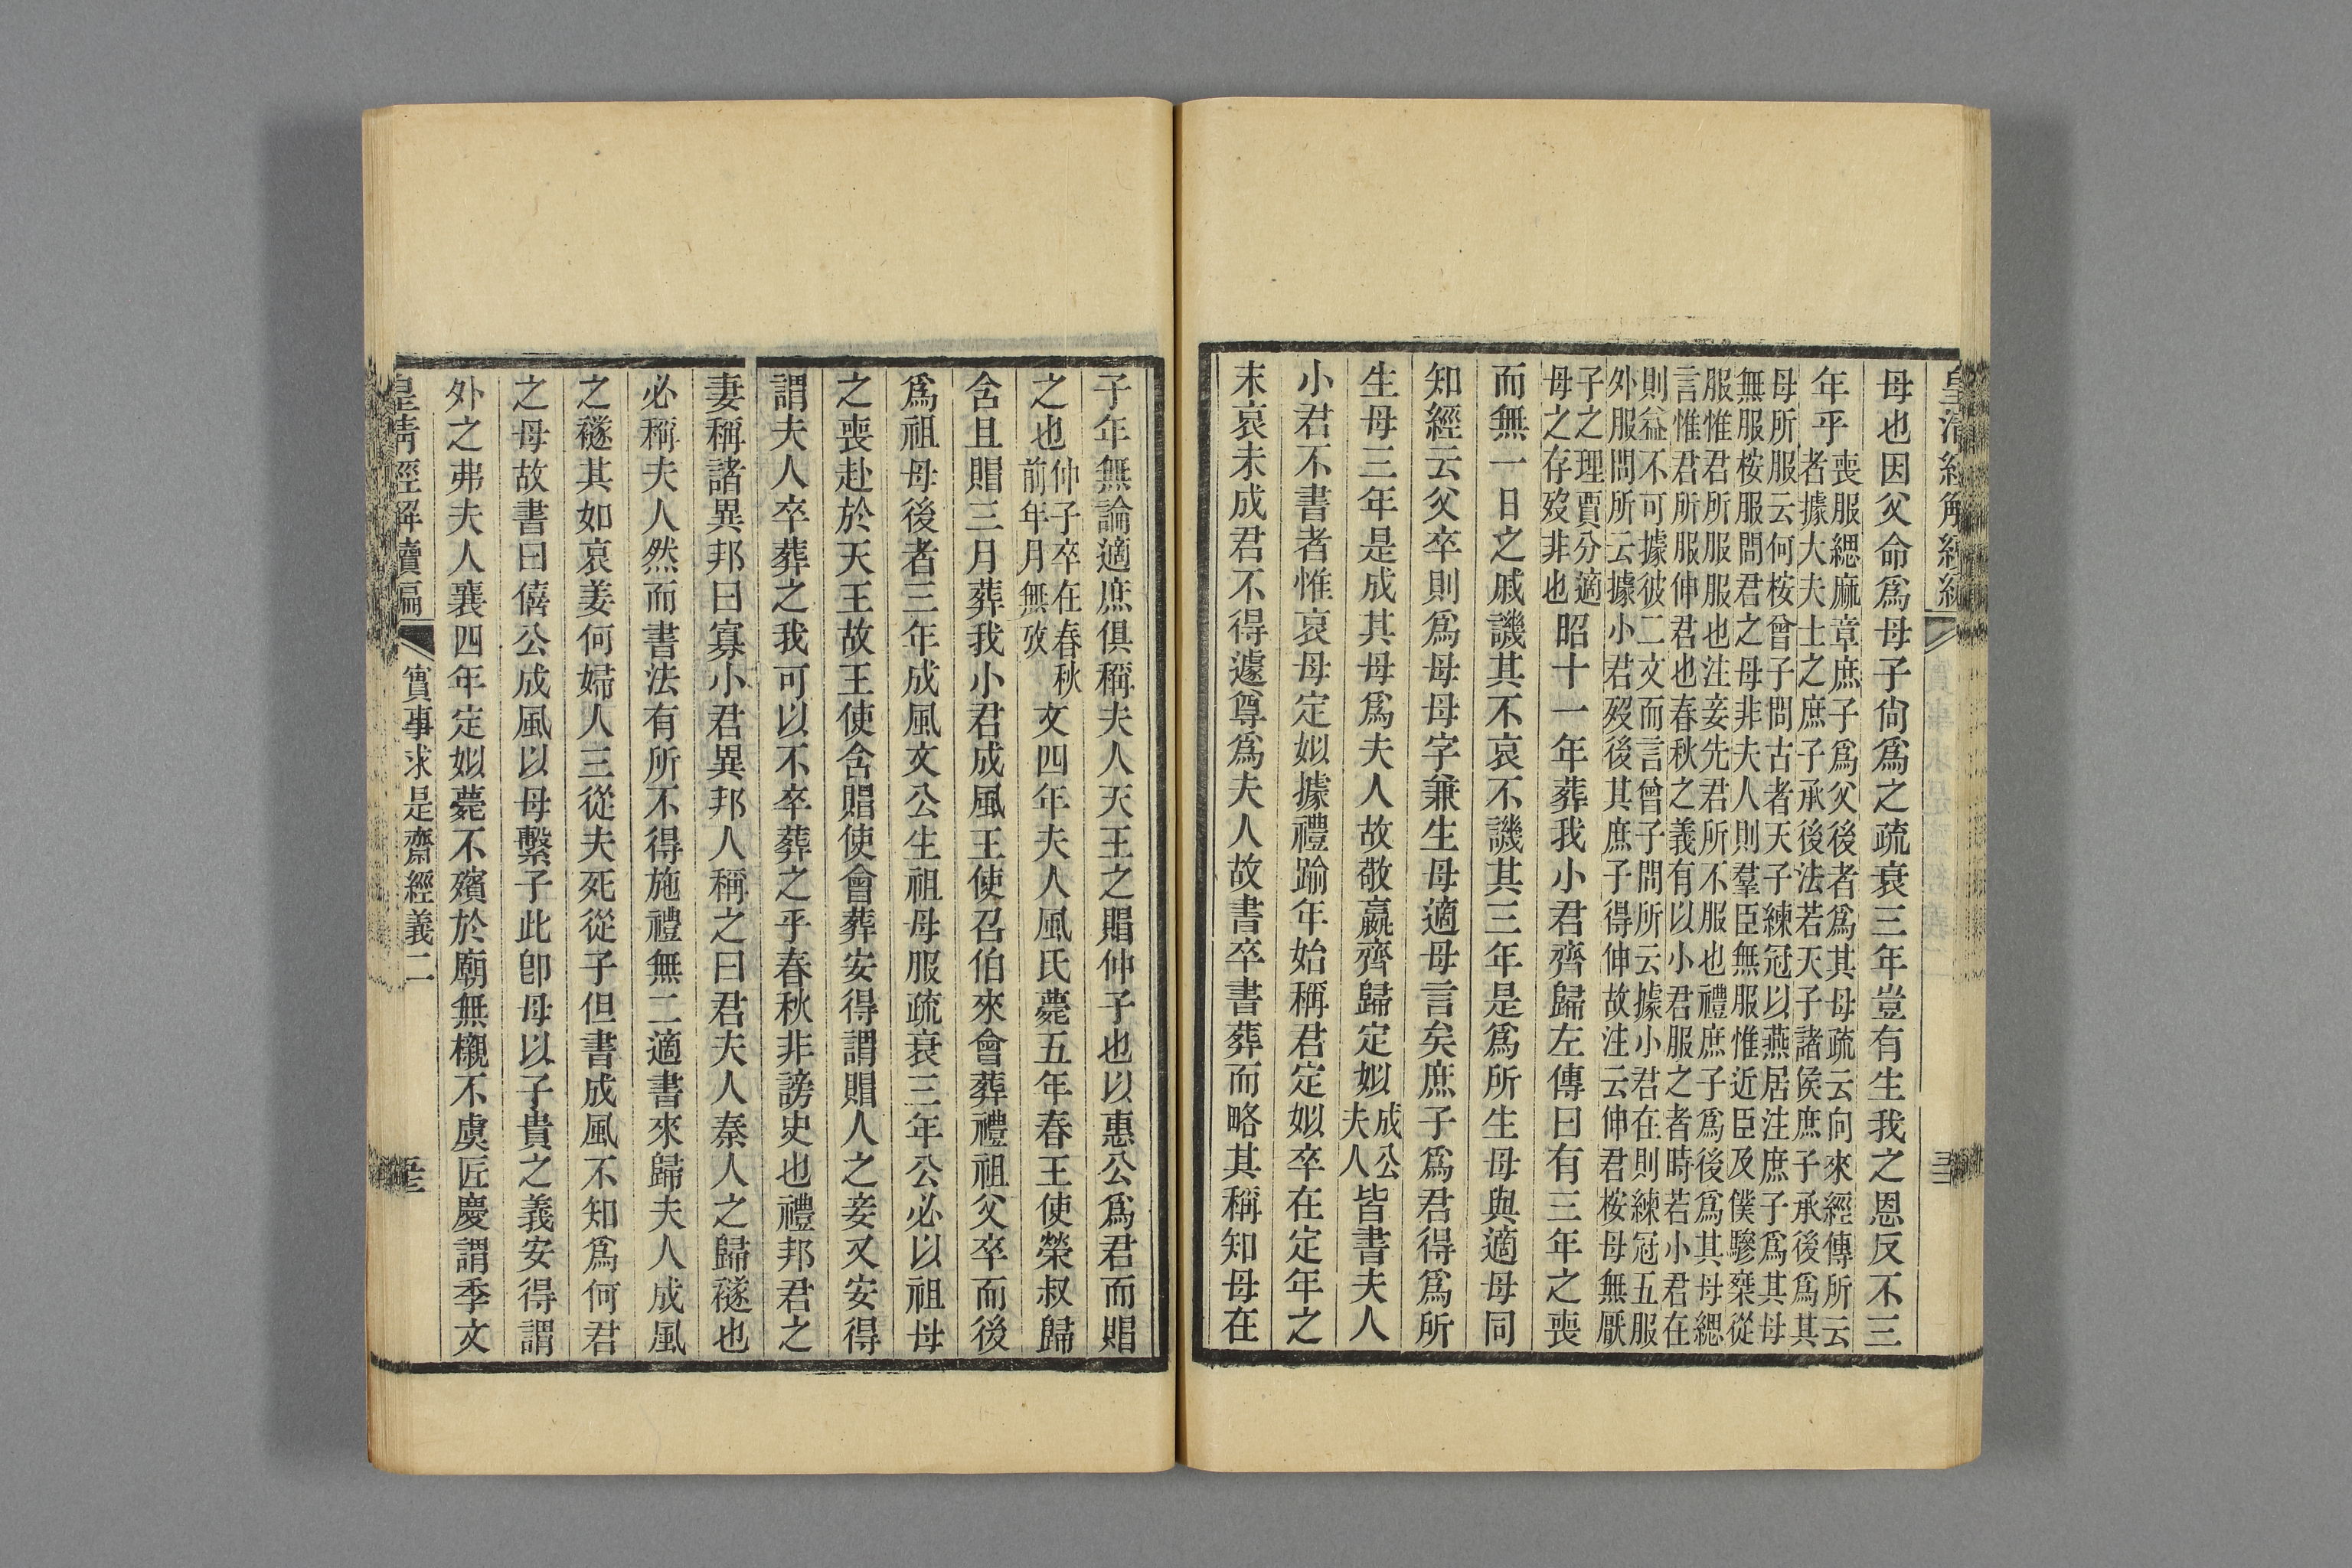 皇清經解續編
母也因父命爲母子尙爲之疏衰三年豈有生我之恩反不三
年乎
喪服緦麻章庶子爲父後者爲其母疏云向來經傳所云
者據大夫士之庶子承後法若天子諸侯庶子承後爲其
母所服云何桉曾子問古者天子練冠以燕居注庶子爲其母
無服桉服問君之母非夫人則羣臣無服惟近臣及僕驂椉從
服惟君所服服也注妾先君所不服也禮庶子爲後爲其母緦
言惟君所服伸君也春秋之義有以小君服之者時若小君在
則益不可據彼二文而言曾子問所云據小君在則練冠五服
外服問所云據小君歿後其庶子得伸故注云伸君桉母無厭
子之理賈分適
母之存歿非也
昭十一年葬我小君齊歸左傳曰有三年之喪
而無一日之戚譏其不哀不譏其三年是爲所生母與適母同
知經云父卒則爲母母字兼生母適母言矣庶子爲君得爲所
生母三年是成其母爲夫人故敬嬴齊歸定姒
成公
夫人
皆書夫人
小君不書者惟哀母定姒據禮踰年始稱君定姒卒在定年之
末哀未成君不得遽尊爲夫人故書卒書葬而略其稱知母在
子年無論適庶俱稱夫人天王之賵仲子也以惠公爲君而賵
之也
仲子卒在春秋
前年月無攷
文四年夫人風氏薨五年春王使榮叔歸
含且賵三月葬我小君成風王使召伯來會葬禮祖父卒而後
爲祖母後者三年成風文公生祖母服疏衰三年公必以祖母
之喪赴於天王故王使含賵使會葬安得謂賵人之妾又安得
謂夫人卒葬之我可以不卒葬之乎春秋非謗史也禮邦君之
妻稱諸異邦曰寡小君異邦人稱之曰君夫人秦人之歸襚也
必稱夫人然而書法有所不得施禮無二適書來歸夫人成風
之襚其如哀姜何婦人三從夫死從子但書成風不知爲何君
之母故書曰僖公成風以母繫子此卽母以子貴之義安得謂
外之弗夫人襄四年定姒薨不殯於廟無櫬不虞匠慶謂季文
皇清經解續編
實事求是齋經義二